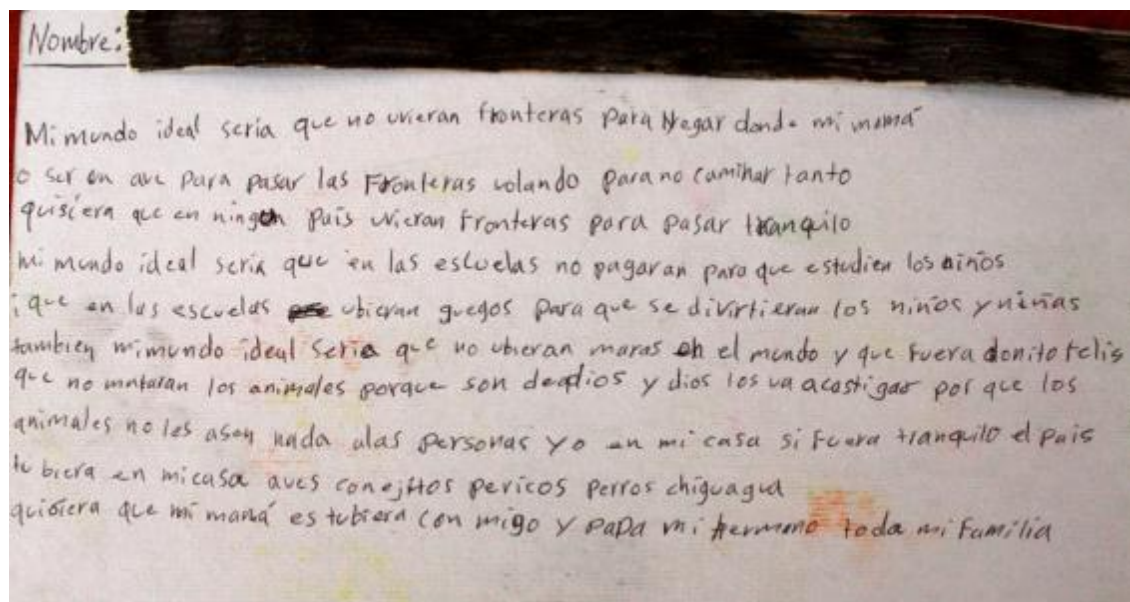 Nombre:
Mi mundo ideal seria que no uvieran fronteras para llegar donde mi mamá
o ser un ave para pasar las Fronteras volando para no caminar tanto
quisiera que en ningun país uvieran Fronteras para pasar tranquilo
mi mundo ideal seria que en las escuelas no pagaran para que estudien los niños
i que en las escuelas ubieran guegos para que se divirtieran los niños y niñas
tambien mi mundo ideal seria que no ubieran maras en el mundo y que fuera bonito felis
que no mataran los animales porque son de dios y dios los va acastigar por que los
animales no les asen nada alas personas yo en mi casa si Fuera tranquilo el país
tubiera en mi casa aves conejitos pericos perros chiguagua
quisiera que mi mamá estubiera con migo y papa mi hermano toda mi Familia